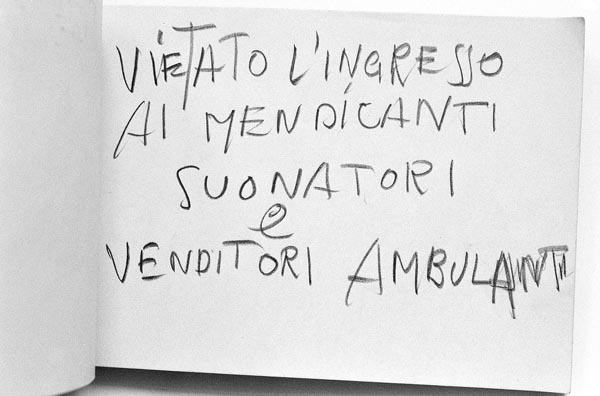 VIETATO L'INGRESSO
AI MENDICANTI
SUONATORI
e
VENDITORI AMBULANTI